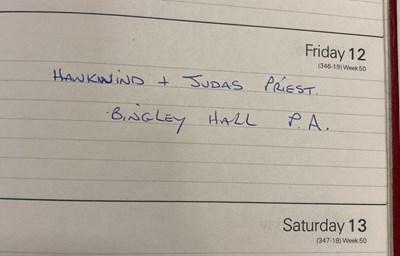 Friday 12
(346-19) Week 50
HAWKWIND + JUDAS PRIEST.
BINGLEY HALL P.A.
Saturday 13
(347-18) Week 50